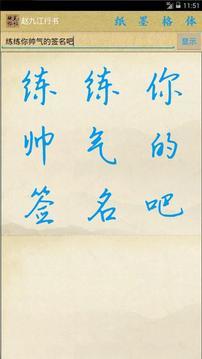 11:51
赵九江行书 纸 墨 格 体
练练你帅气的签名吧 显示
练练你
帅气的
签名吧